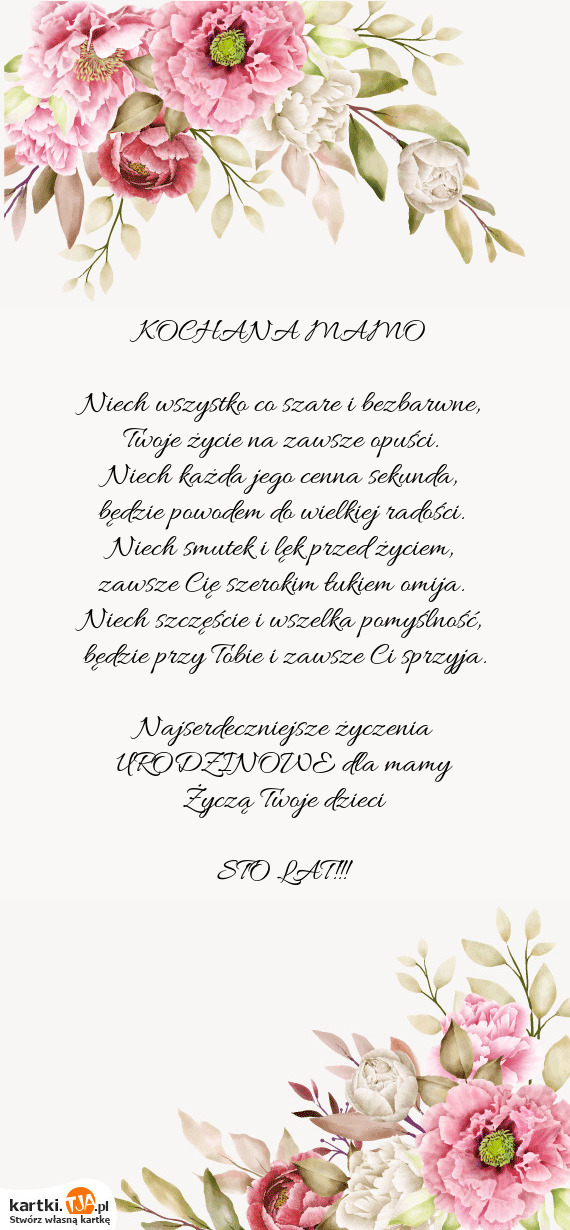 KOCHANA MAMO
Niech wszystko co szare i bezbarwne,
Twoje życie na zawsze opuści.
Niech każda jego cenna sekunda,
będzie powodem do wielkiej radości.
Niech smutek i lęk przed życiem,
zawsze Cię szerokim łukiem omija.
Niech szczęście i wszelka pomyślność,
będzie przy Tobie i zawsze Ci sprzyja.
Najserdeczniejsze życzenia
URODZINOWE dla mamy
Życzą Twoje dzieci
STO LAT!!!
kartki.TJA.pl
Stwórz własną kartkę